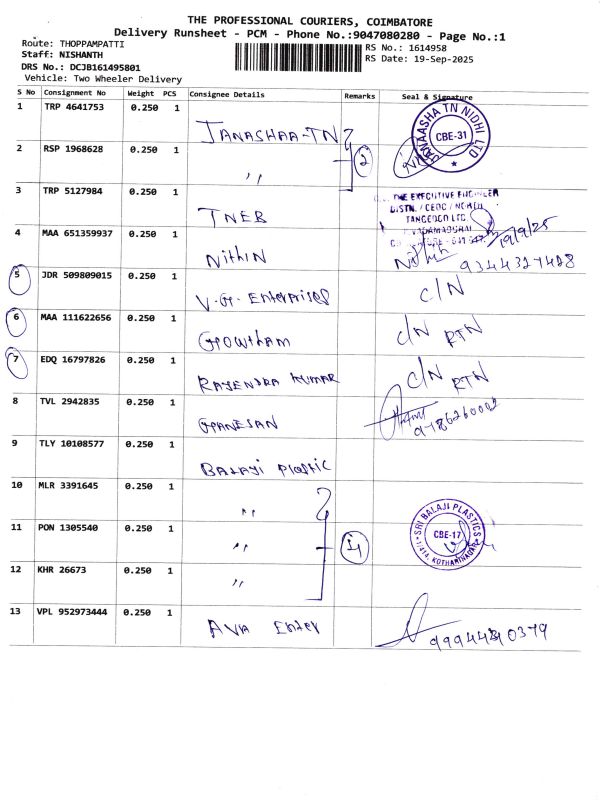 THE PROFESSIONAL COURIERS, COIMBATORE
Delivery Runsheet - PCM - Phone No.:9047080280 - Page No.:1
Route: THOPPAMPATTI
Staff: NISHANTH
DRS No.: DCJB161495801
Vehicle: Two Wheeler Delivery
RS No.: 1614958
RS Date: 19-Sep-2025
S No Consignment No Weight PCS Consignee Details Remarks Seal & Signature
1 TRP 4641753 0.250 1 JANASHAA-TN
JANVAASHA TN NIDHI LTD
CBE-31
2 RSP 1968628 0.250 1 ,, 2
3 TRP 5127984 0.250 1 TNEB
THE EXECUTIVE ENGINEER
DISTN. / CEDC / NORTH
TANGEDCO LTD.
VADAMADURAI
19/9/25
4 MAA 651359937 0.250 1 Nithin Nithin
9344327428
5 JDR 509809015 0.250 1 V.G. Enterprises C/N
6 MAA 111622656 0.250 1 Gowtham C/N RTN
7 EDQ 16797826 0.250 1 RAJENDRA KUMAR C/N RTN
8 TVL 2942835 0.250 1 GANESAN
9 TLY 10108577 0.250 1 Balaji Plastic
10 MLR 3391645 0.250 1 ,,
11 PON 1305540 0.250 1 ,, 4
SRI BALAJI PLASTICS
CBE-17
11/414, KOTHANTHAVADI
12 KHR 26673 0.250 1 ,,
13 VPL 952973444 0.250 1 AVA Enter